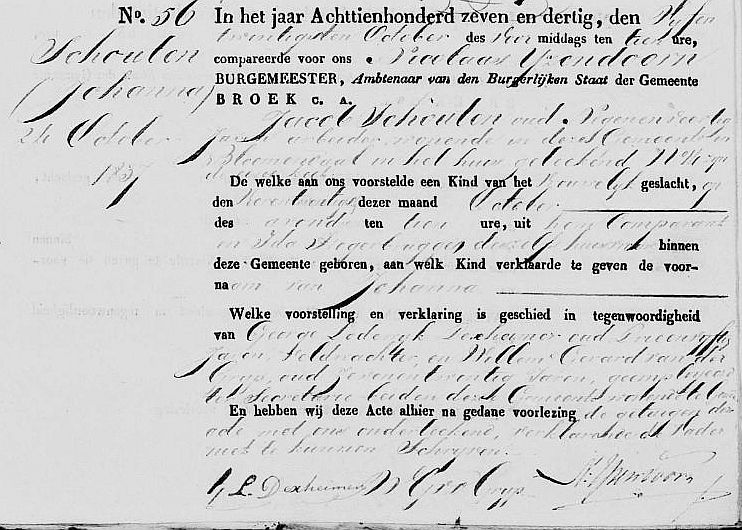 No. 56 In het jaar Achttienhonderd zeven en dertig, den Vyfen
twintigsten October des Voor middags ten tien ure,
Schouten
compareerde voor ons Nicolaas
BURGEMEESTER, Ambtenaar van den Burgerlijken Staat der Gemeente
(Johanna)
BROEK C. A.
Jacob Schouten oud Negenenveertig
24 October
Jaren arbeider wonende in deze Gemeente
Bloemendaal in het huis geteekend N
1837
De welke aan ons voorstelde een Kind van het Vrouwelyk geslacht,
den dezer maand October
des avonds ten tien ure, uit hem Comparant
en Ida binnen
deze Gemeente geboren, aan welk Kind verklaarde te geven de voor-
naam van Johanna
Welke voorstelling en verklaring is geschied in tegenwoordigheid
van George Loderyk Dexheimer oud
Jaren, Veldwachter, en Willem Gerard van der
Gryp, oud Zevenentwintig Jaren, geemployeerd
ter Secretarie beiden deze Gemeente
En hebben wij deze Acte alhier na gedane voorlezing de getuigen deze
acte met ons onderteekend, verklarende de Vader
niet te kunnen Schryven.
G L Dexheimer W G vd Gryp